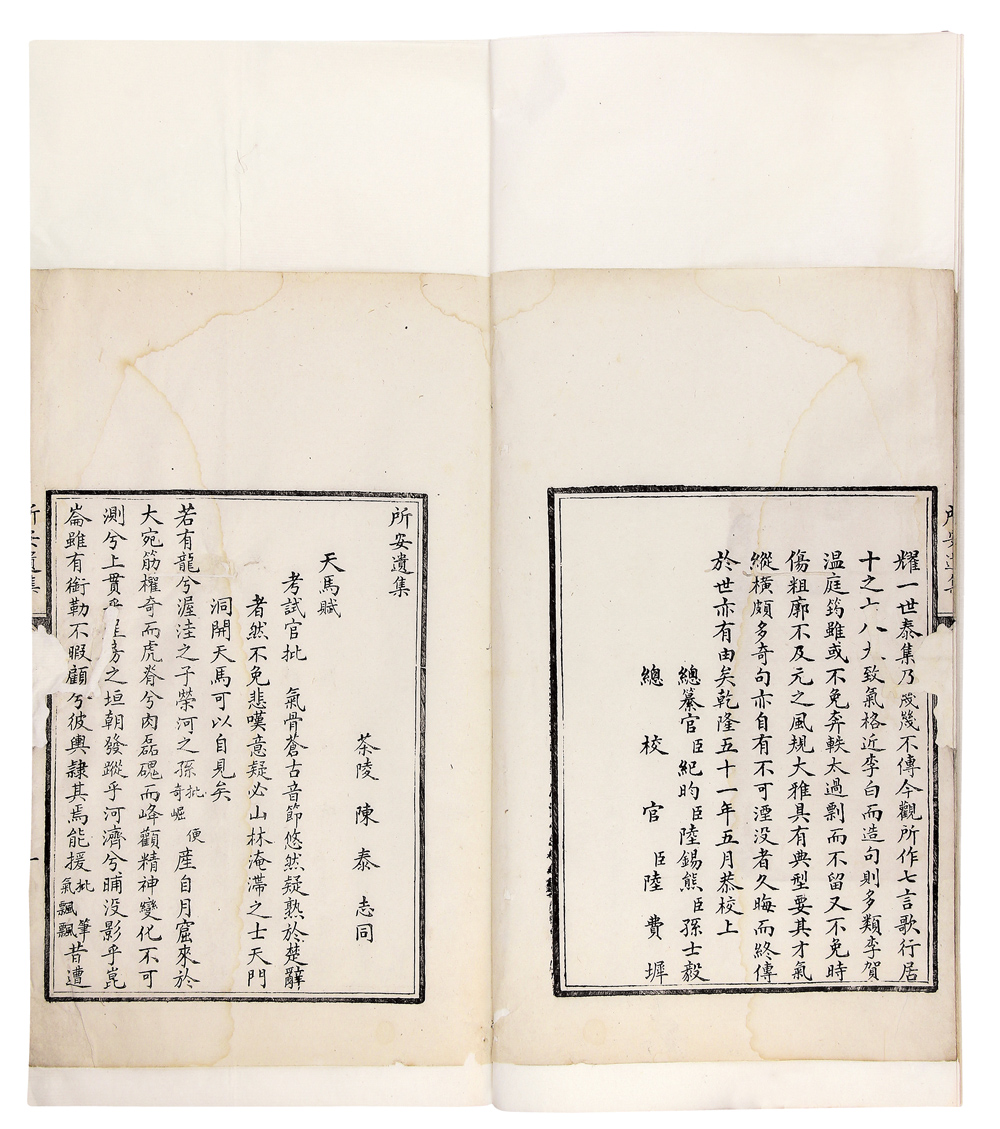 耀一世泰集乃幾不傳今觀所作七言歌行居
十之致氣格近李白而造句則多類李賀
温庭筠雖或不免奔軼太過剽而不留又不免時
傷粗廓不及元之風規大雅具有典型要其才氣
縱横頗多奇句亦自有不可湮没者久晦而終傳
於世亦有由矣乾隆五十一年五月恭校上
總纂官臣紀昀臣陸錫熊臣孫士毅
總校官臣陸費墀
所安遺集
茶陵陳泰志同
天馬賦
考試官批 氣骨蒼古音節悠然疑熟於楚辭
者然不免悲嘆意疑必山林淹滯之士天門
洞開天馬可以自見矣
若有龍兮渥洼之子榮河之孫批便奇崛産自月窟來於
大宛筋櫂奇而虎脊兮肉磊磈而峰顴精神變化不可
測兮上貫乎旁之垣朝發蹤乎河濟兮晡没影乎崑
崙雖有銜勒不暇顧兮彼輿隷其焉能援批筆氣飄飄昔遭
所安遺集